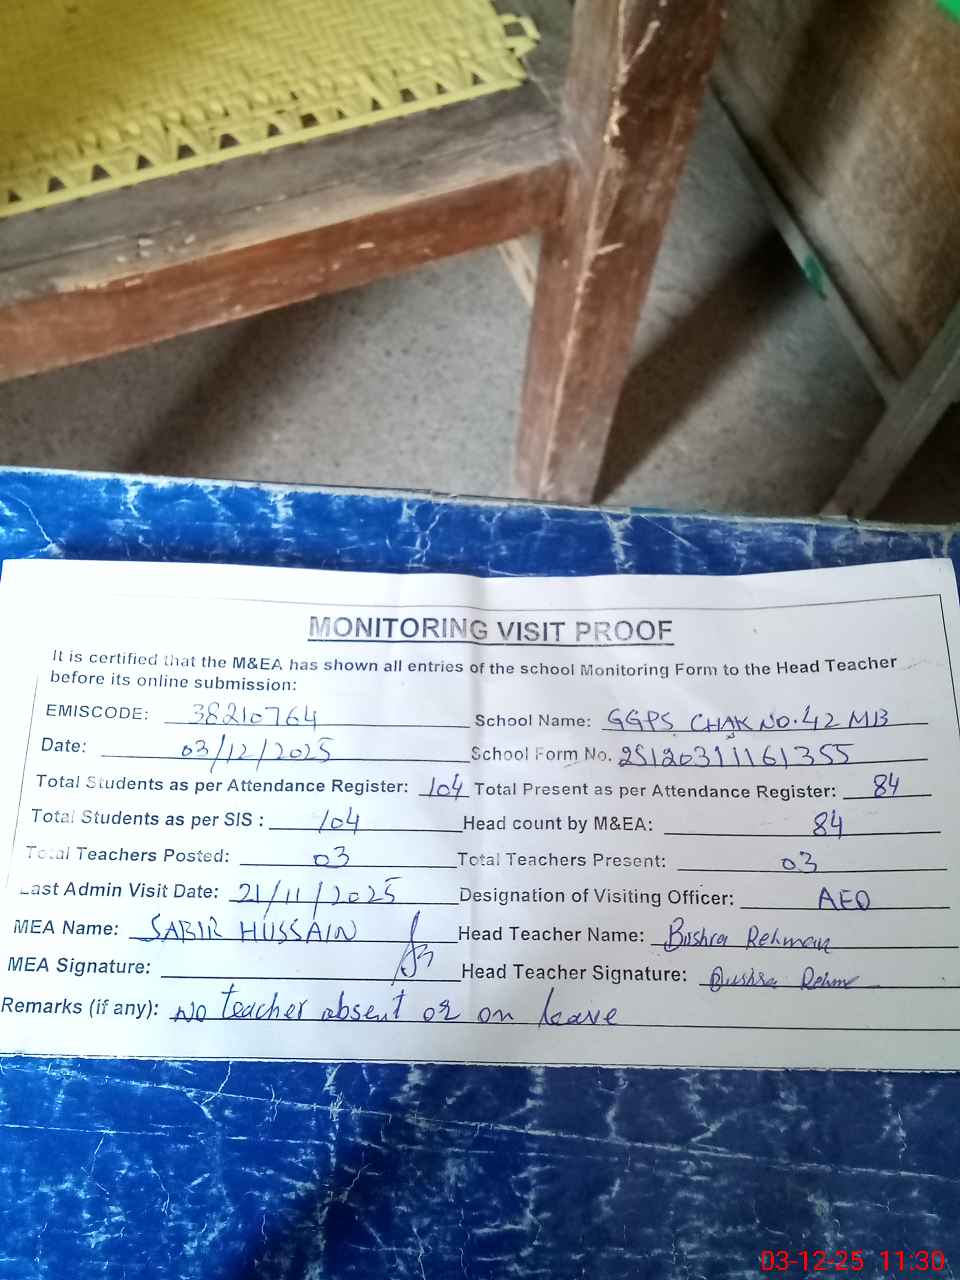 MONITORING VISIT PROOF
It is certified that the M&EA has shown all entries of the school Monitoring Form to the Head Teacher
before its online submission:
EMISCODE: 38210764 School Name: GGPS CHAK NO. 42 MB
Date: 03/12/2025 School Form No. 25120311161355
Total Students as per Attendance Register: 104 Total Present as per Attendance Register: 84
Total Students as per SIS : 104 Head count by M&EA: 84
Total Teachers Posted: 03 Total Teachers Present: 03
Last Admin Visit Date: 21/11/2025 Designation of Visiting Officer: AEO
MEA Name: SABIR HUSSAIN Head Teacher Name: Bushra Rehman
MEA Signature: Head Teacher Signature: Bushra Rehma
Remarks (if any): No teacher absent or on leave
03-12-25 11:30